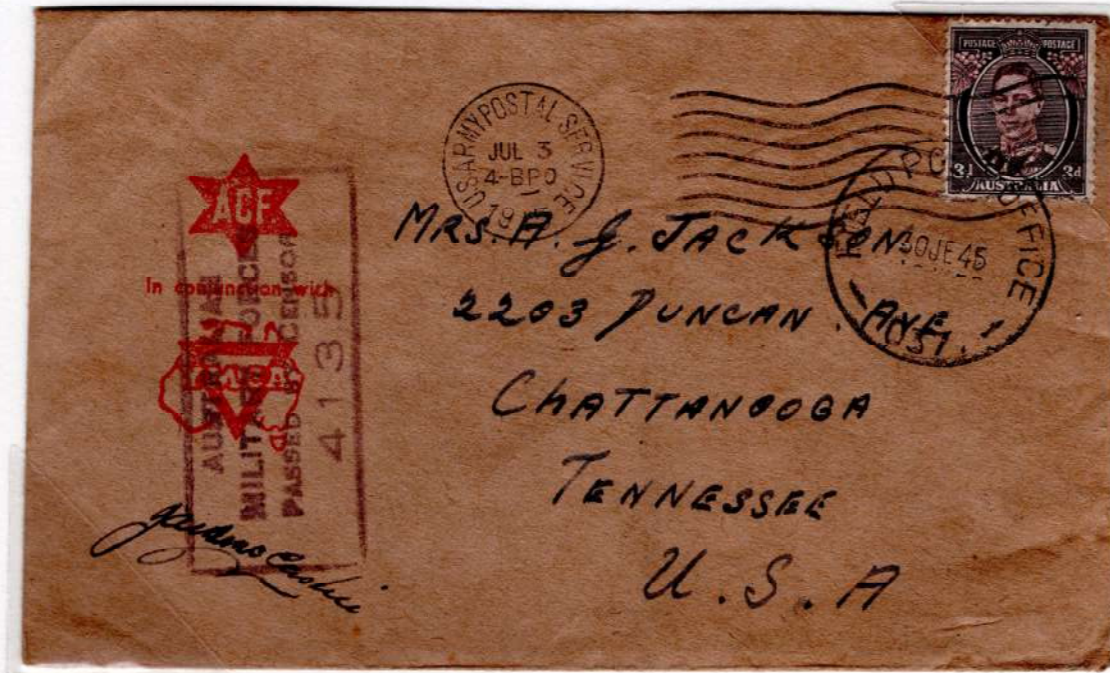 POSTAGE POSTAGE
3d 3d
AUSTRALIA
U.S. ARMY POSTAL SERVICE
JUL 3
4-BPO
FIELD POST OFFICE
30JE45
031
ACF
In conjunction with
YMCA
AUSTRALIAN
MILITARY FORCES
PASSED BY CENSOR
4135
MRS. A. J. JACKSON
2203 DUNCAN AVE.
CHATTANOOGA
TENNESSEE
U.S.A